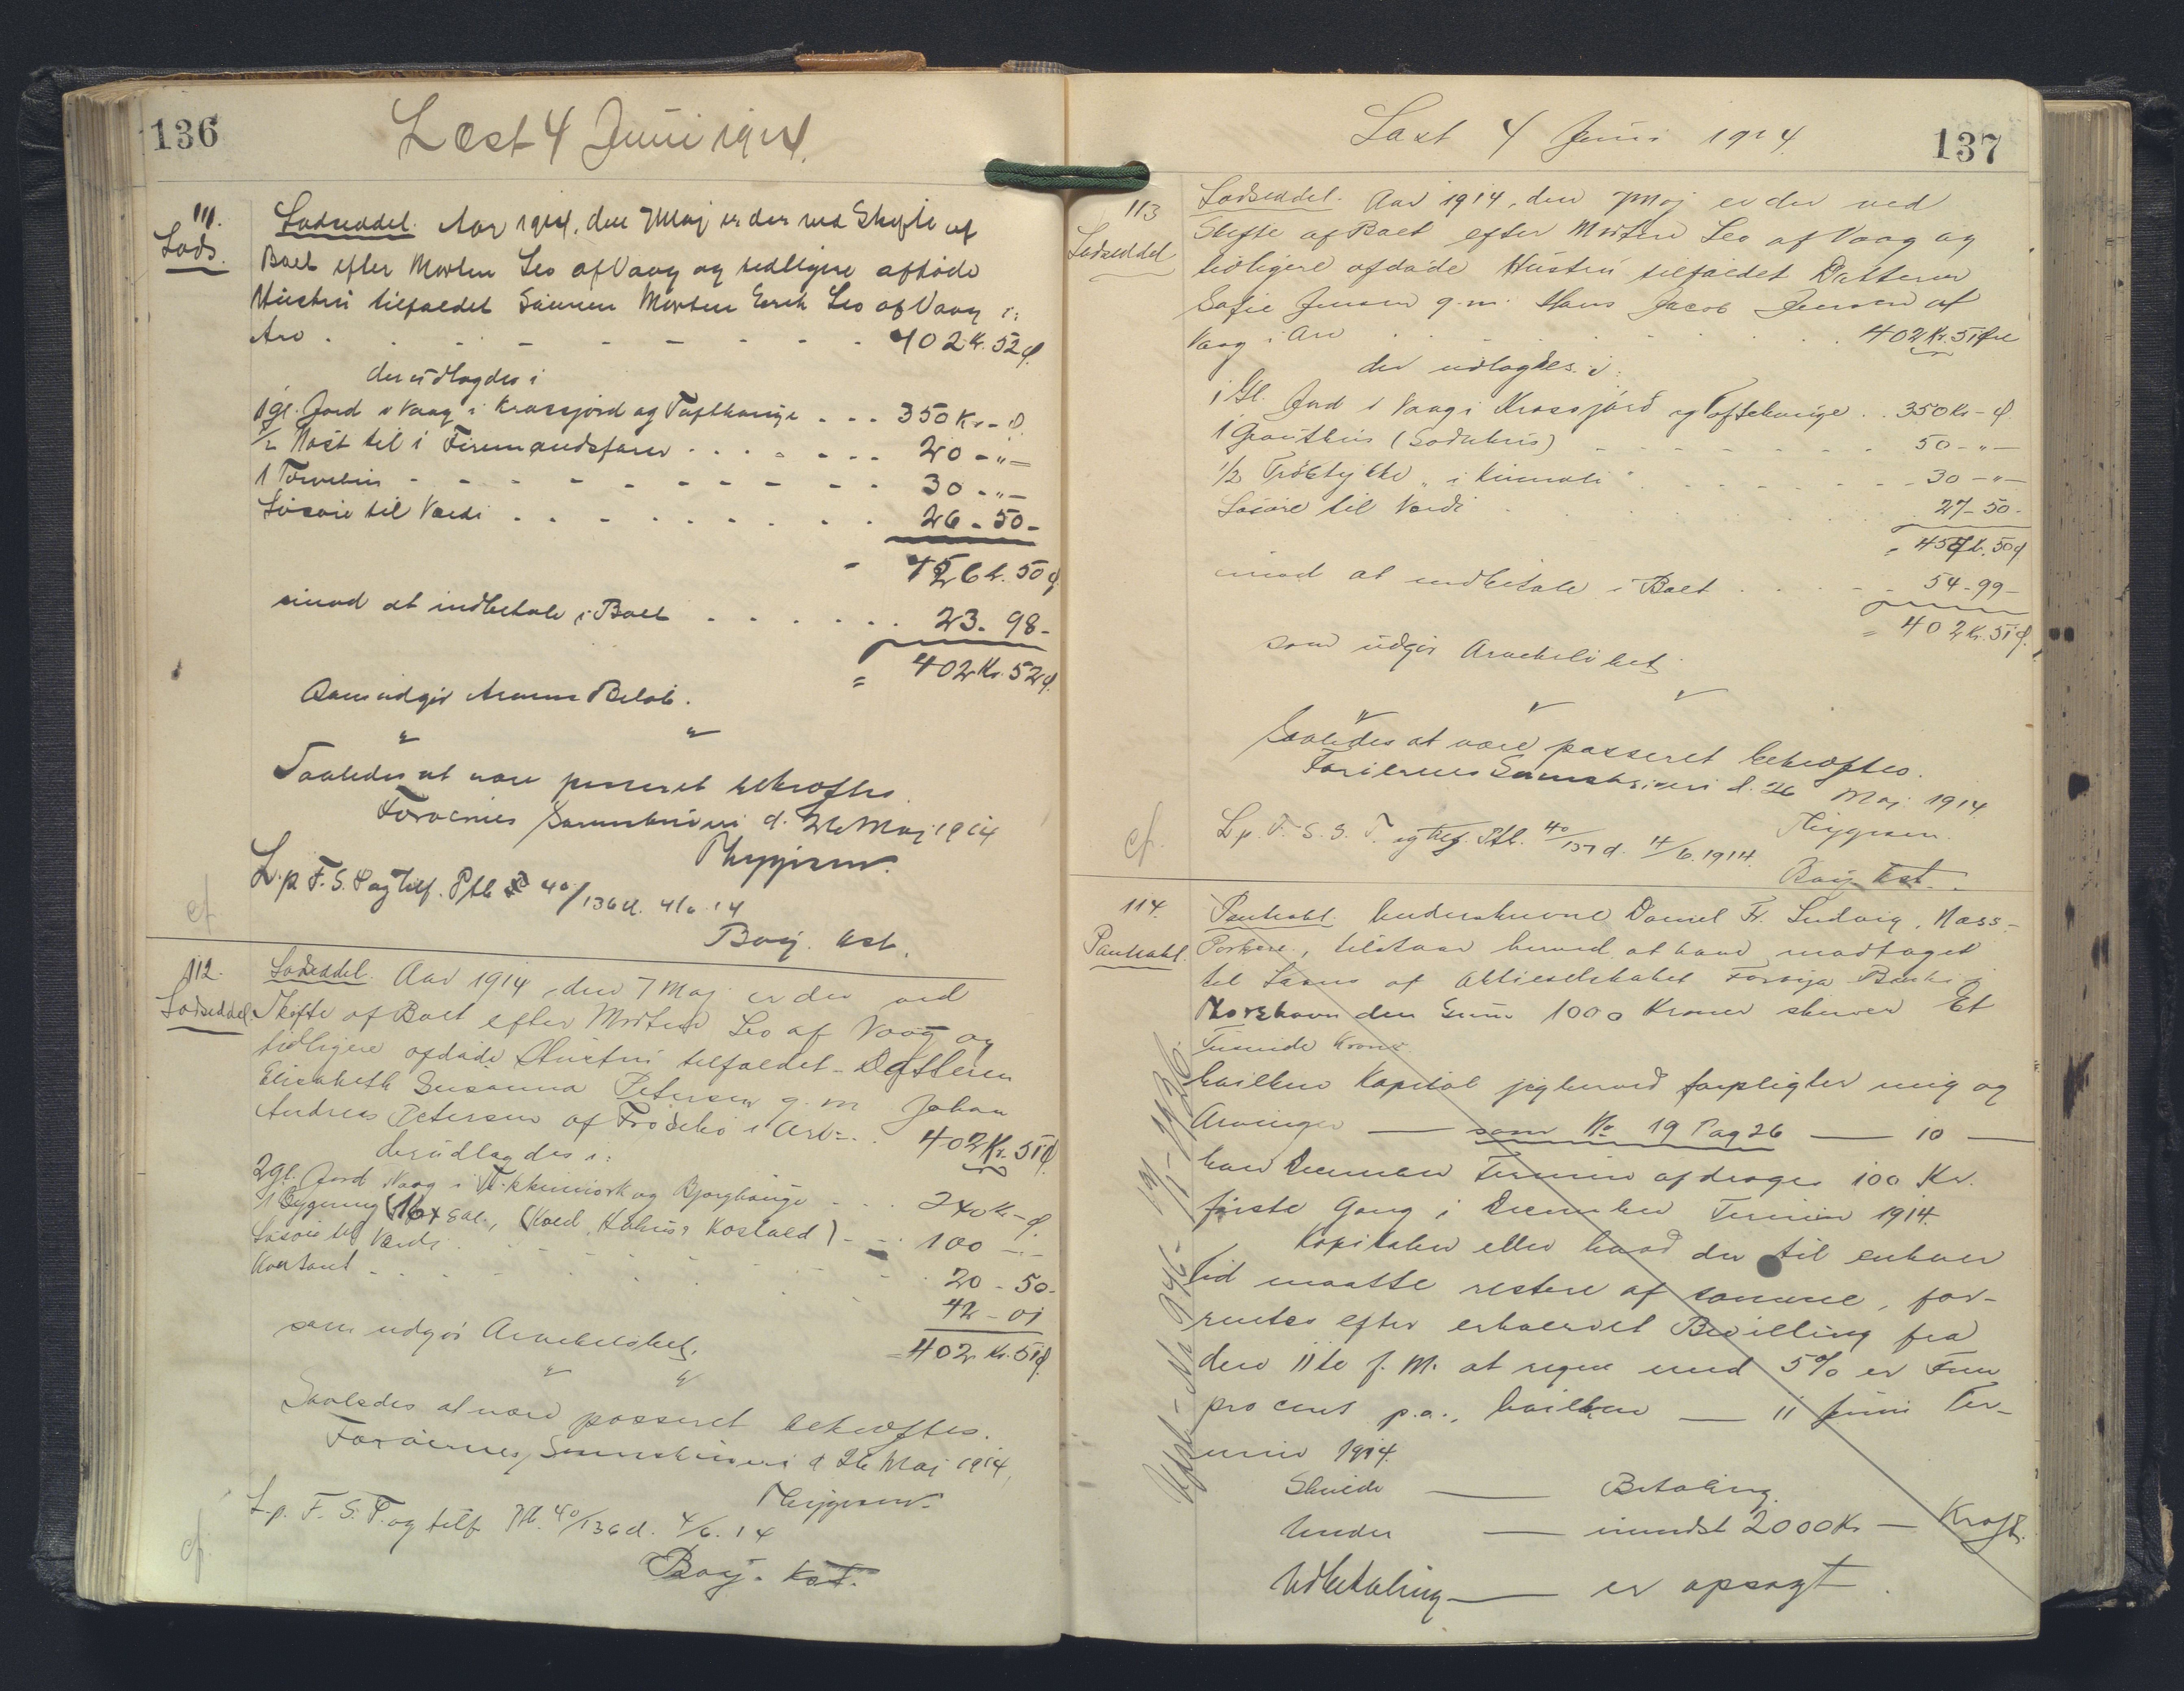 136
Læst 4 Juni 1914.
111.
Lods.
Lodseddel. Aar 1914, den 7 Maj er der ved Skifte af
Boet efter Morten Leo af Vaag og tidligere afdøde
Hustru tilfaldet Sønnen Morten Leo af Vaag i
Arv . . . 402 Kr. 52 Ø.
der udlagdes i
1 gl. Jord i Vaag i Krossjord og Tofthauge . . . 350 Kr - Ø.
1/2 Nøst til i . . . 20 - " -
1 Torvehus . . . 30 - " -
Løsøre til Værdi . . . 26 - 50 -
- 426 k. 50 Ø
imod at indbetale i Boet . . . 23. 98 -
= 402 Kr. 52 Ø.
Som udgør Arvens Beløb.
" "
Saaledes at være passeret bekræftes.
Færøernes Sorenskriveri d. 26 Maj 1914
L. p. F. S. T. og tilf. Ptb. 40/136 d. 4/6 14
Bøg. Kst.
cf.
112.
Lodseddel.
Lodseddel. Aar 1914, den 7 Maj er der ved
Skifte af Boet efter Morten Leo af Vaag og
tidligere afdøde Hustru tilfaldet Datteren
Elisabeth Susanna Petersen g. m. Johan
Andreas Petersen af Frodebø i Arv . . 402 Kr. 51 Ø.
der udlagdes i:
2 gl. Jord i Vaag i og Bjarghauge . . . 240 Kr - Ø.
1 Bygning (16 x 8 al., Kostald) . . . 100 - " -
Løsøre til Værdi . . . 20 - 50 -
Kontant . . . 42 - 01
= 402 Kr. 51 Ø.
som udgør Arvebeløbet.
" "
Saaledes at være passeret bekræftes.
Færøernes Sorenskriveri d. 26 Maj 1914,
L. p. F. S. T. og tilf. Ptb. 40/136 d. 4/6. 14
Bøg. Kst.
cf.
Læst 4 Juni 1914.
137
113
Lodseddel
Lodseddel. Aar 1914, den 7 Maj er der ved
Skifte af Boet efter Morten Leo af Vaag og
tidligere afdøde Hustru tilfaldet Datteren
Sofie Jensen g. m. Hans Jacob Jensen af
Vaag i Arv . . . 402 Kr. 51 Øre
der udlagdes i:
1 Gl. Jord i Vaag i Krossjord og Toftehauge . . 350 Kr - Ø.
1 Grauthus (Sodnhus) . . . 50 - " -
1/2 Trøstykke " i . . . 30 - " -
Løsøre til Værdi . . . 27 - 50 -
= 457 k. 50 Ø
imod at indbetale i Boet . . . 54 - 99 -
= 402 Kr. 51 Ø.
som udgør Arvebeløbet.
" " "
Saaledes at være passeret bekræftes.
Færøernes Sorenskriveri d. 26 Maj 1914
L. p. F. S. T. og tilf. Ptb. 40/137 d. 4/6. 1914.
Bøg. Kst.
cf.
114.
Panteobl.
Panteobl. Undertegnede Daniel Fr. Ludvig, Næss-
Porkere, tilstaar herved at have modtaget
til Laans af Aktieselskabet Førøja Banki i
Thorshavn den Sum 1000 Kroner skriver Et
Tusinde Kroner
hvilken Kapital jeg herved forpligter mig og
Arvinger — som No 19 Pag 26 — 10 —
hver December Termin afdrages 100 Kr.
første Gang i December Termin 1914.
Kapitalen eller hvad der til enhver
Tid maatte restere af samme, for-
rentes efter erhvervet Bevilling fra
den 11te J. M. at regne med 5% er Fem
procent p. a., hvilken — 11 Juni Ter-
min 1914.
Skulde — Betaling.
Under — mindst 2000 Kr — Kraft.
Udbetaling — er opsagt.